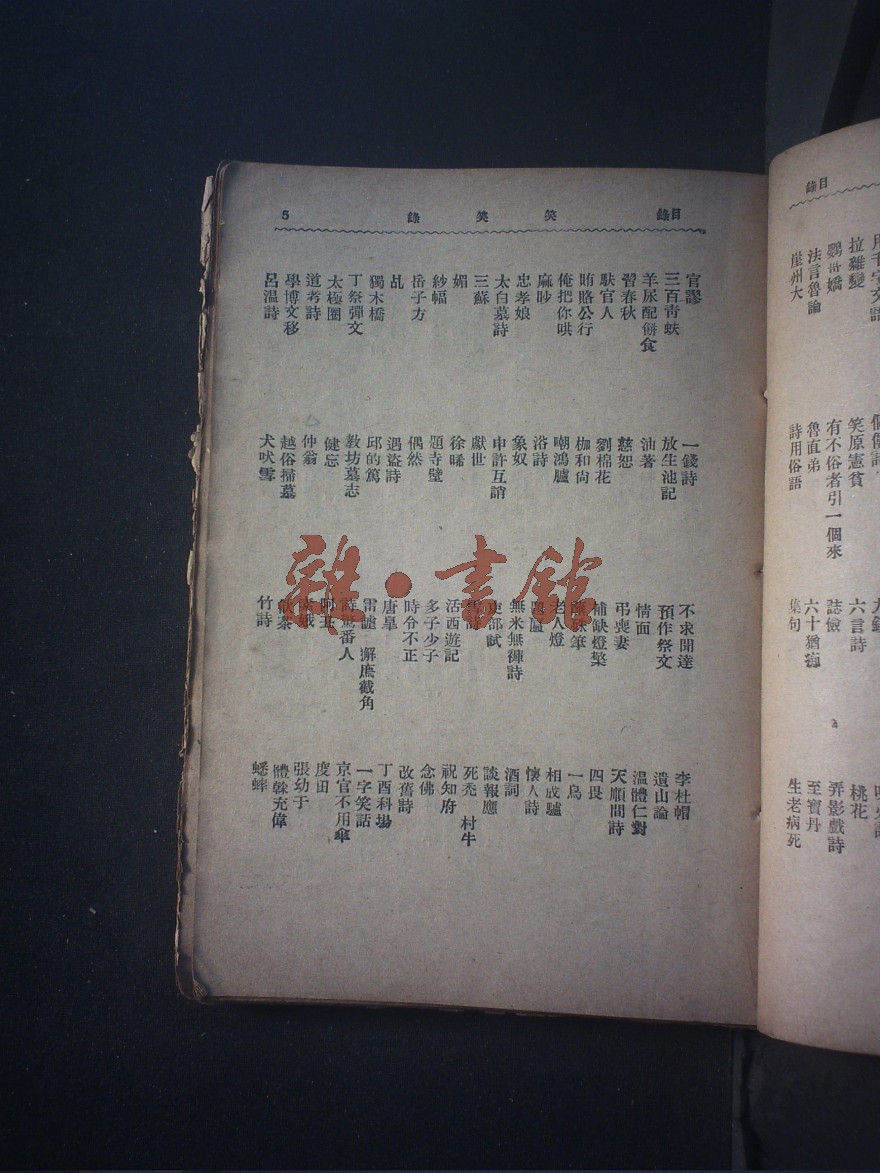 目錄
笑笑錄
5
官謬
三百青蚨
羊尿配餅食
習春秋
馱官人
賄賂公行
俺把你哄
麻眇
忠孝娘
太白墓詩
三蘇
媚
紗幅
岳子方
乩
獨木橋
丁祭彈文
太極圈
道考詩
學博文移
呂温詩
一錢詩
放生池記
油著
慈恕
劉棉花
枷和尙
嘲鴻臚
浴詩
象奴
申許互誚
獻世
徐晞
題寺壁
偶然
遇盜詩
邱的篤
教坊墓志
健忘
仲翁
越俗掃墓
犬吠雪
不求聞達
預作祭文
情面
弔喪妻
補缺燈檠
筆
老人燈
無米無褲詩
吏部試
詩
活西遊記
多子少子
時分不正
唐臯
雷謔 獬廌截角
詩驚番人
茶
竹詩
李杜帽
遺山論
温體仁對
天順間詩
四畏
一鳥
相成驢
懷人詩
酒詞
談報應
死禿 村牛
祝知府
念佛
改舊詩
丁酉科場
一字笑話
京官不用傘
度田
張幼于
體榦充偉
蟋蟀
目錄
拉雜變
鸚世嬌
法言魯論
崖州大
笑原憲貧
有不俗者引一個來
魯直弟
詩用俗語
六言詩
誌儉
六十猶痴
集句
桃花
弄影戲詩
至寶丹
生老病死
雜·書館